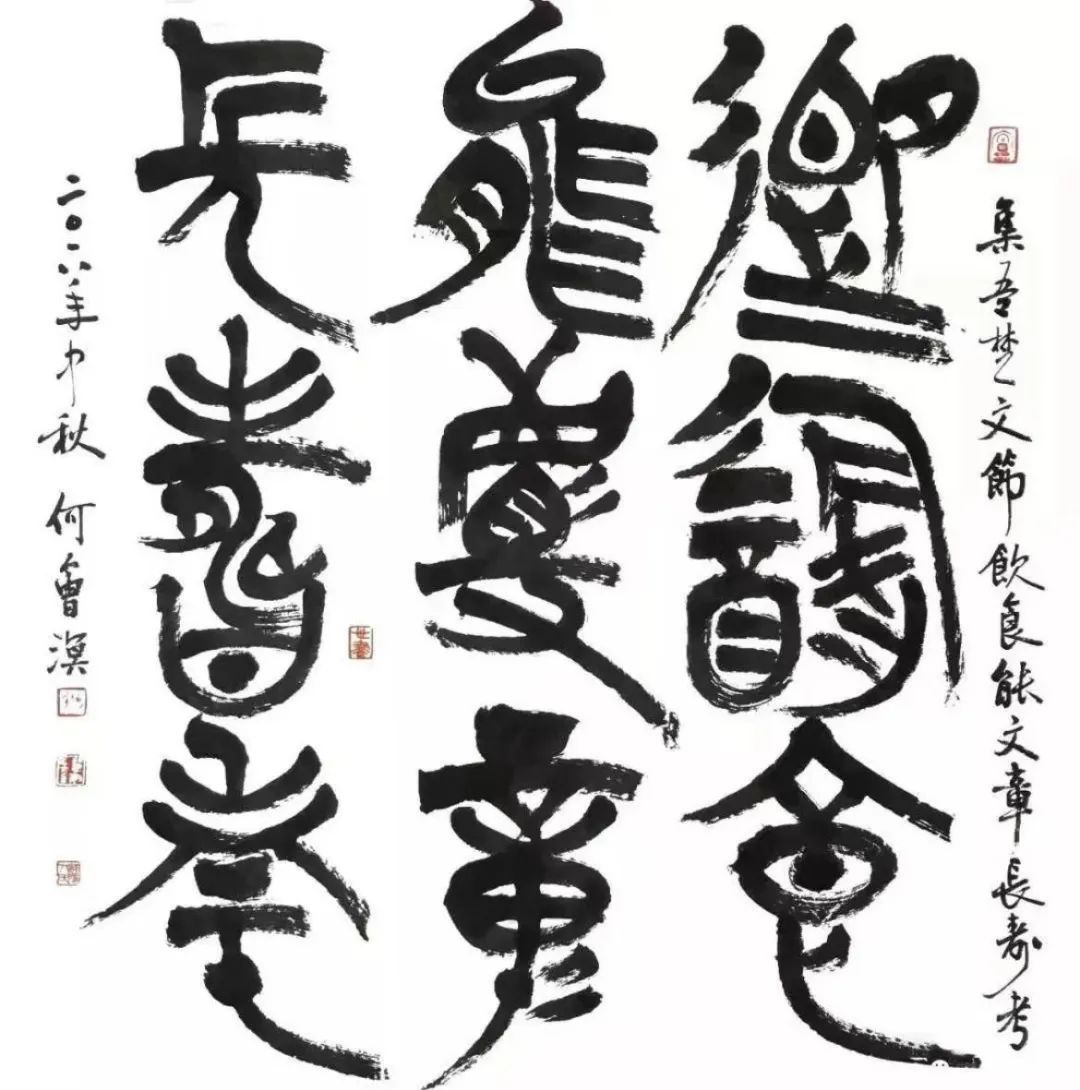 集吾楚文節飲食能文章長壽考
節飲食
能文章
長壽考
二〇一八年中秋 何會溟